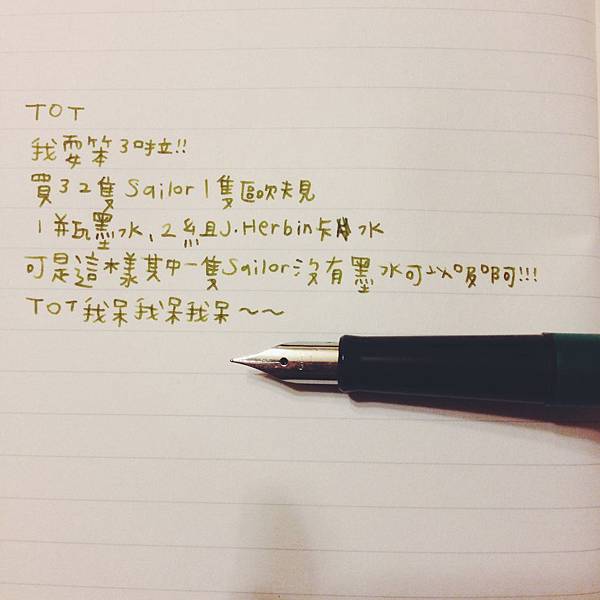 TOT
我要笨了啦!!
買了2隻Sailor 1隻歐規
1瓶墨水、2組J.Herbin卡水
可是這樣其中一隻Sailor沒有墨水可以吸啊!!!
TOT我呆我呆我呆～～